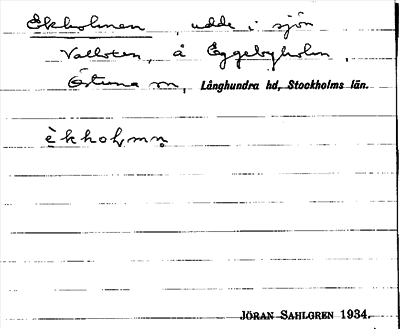 Ekholmen, udde i sjön
Valloxen, å Eggebyholm,
Östuna sn, Långhundra hd, Stockholms län.
èkhoļmn̥
JÖRAN SAHLGREN 1934.